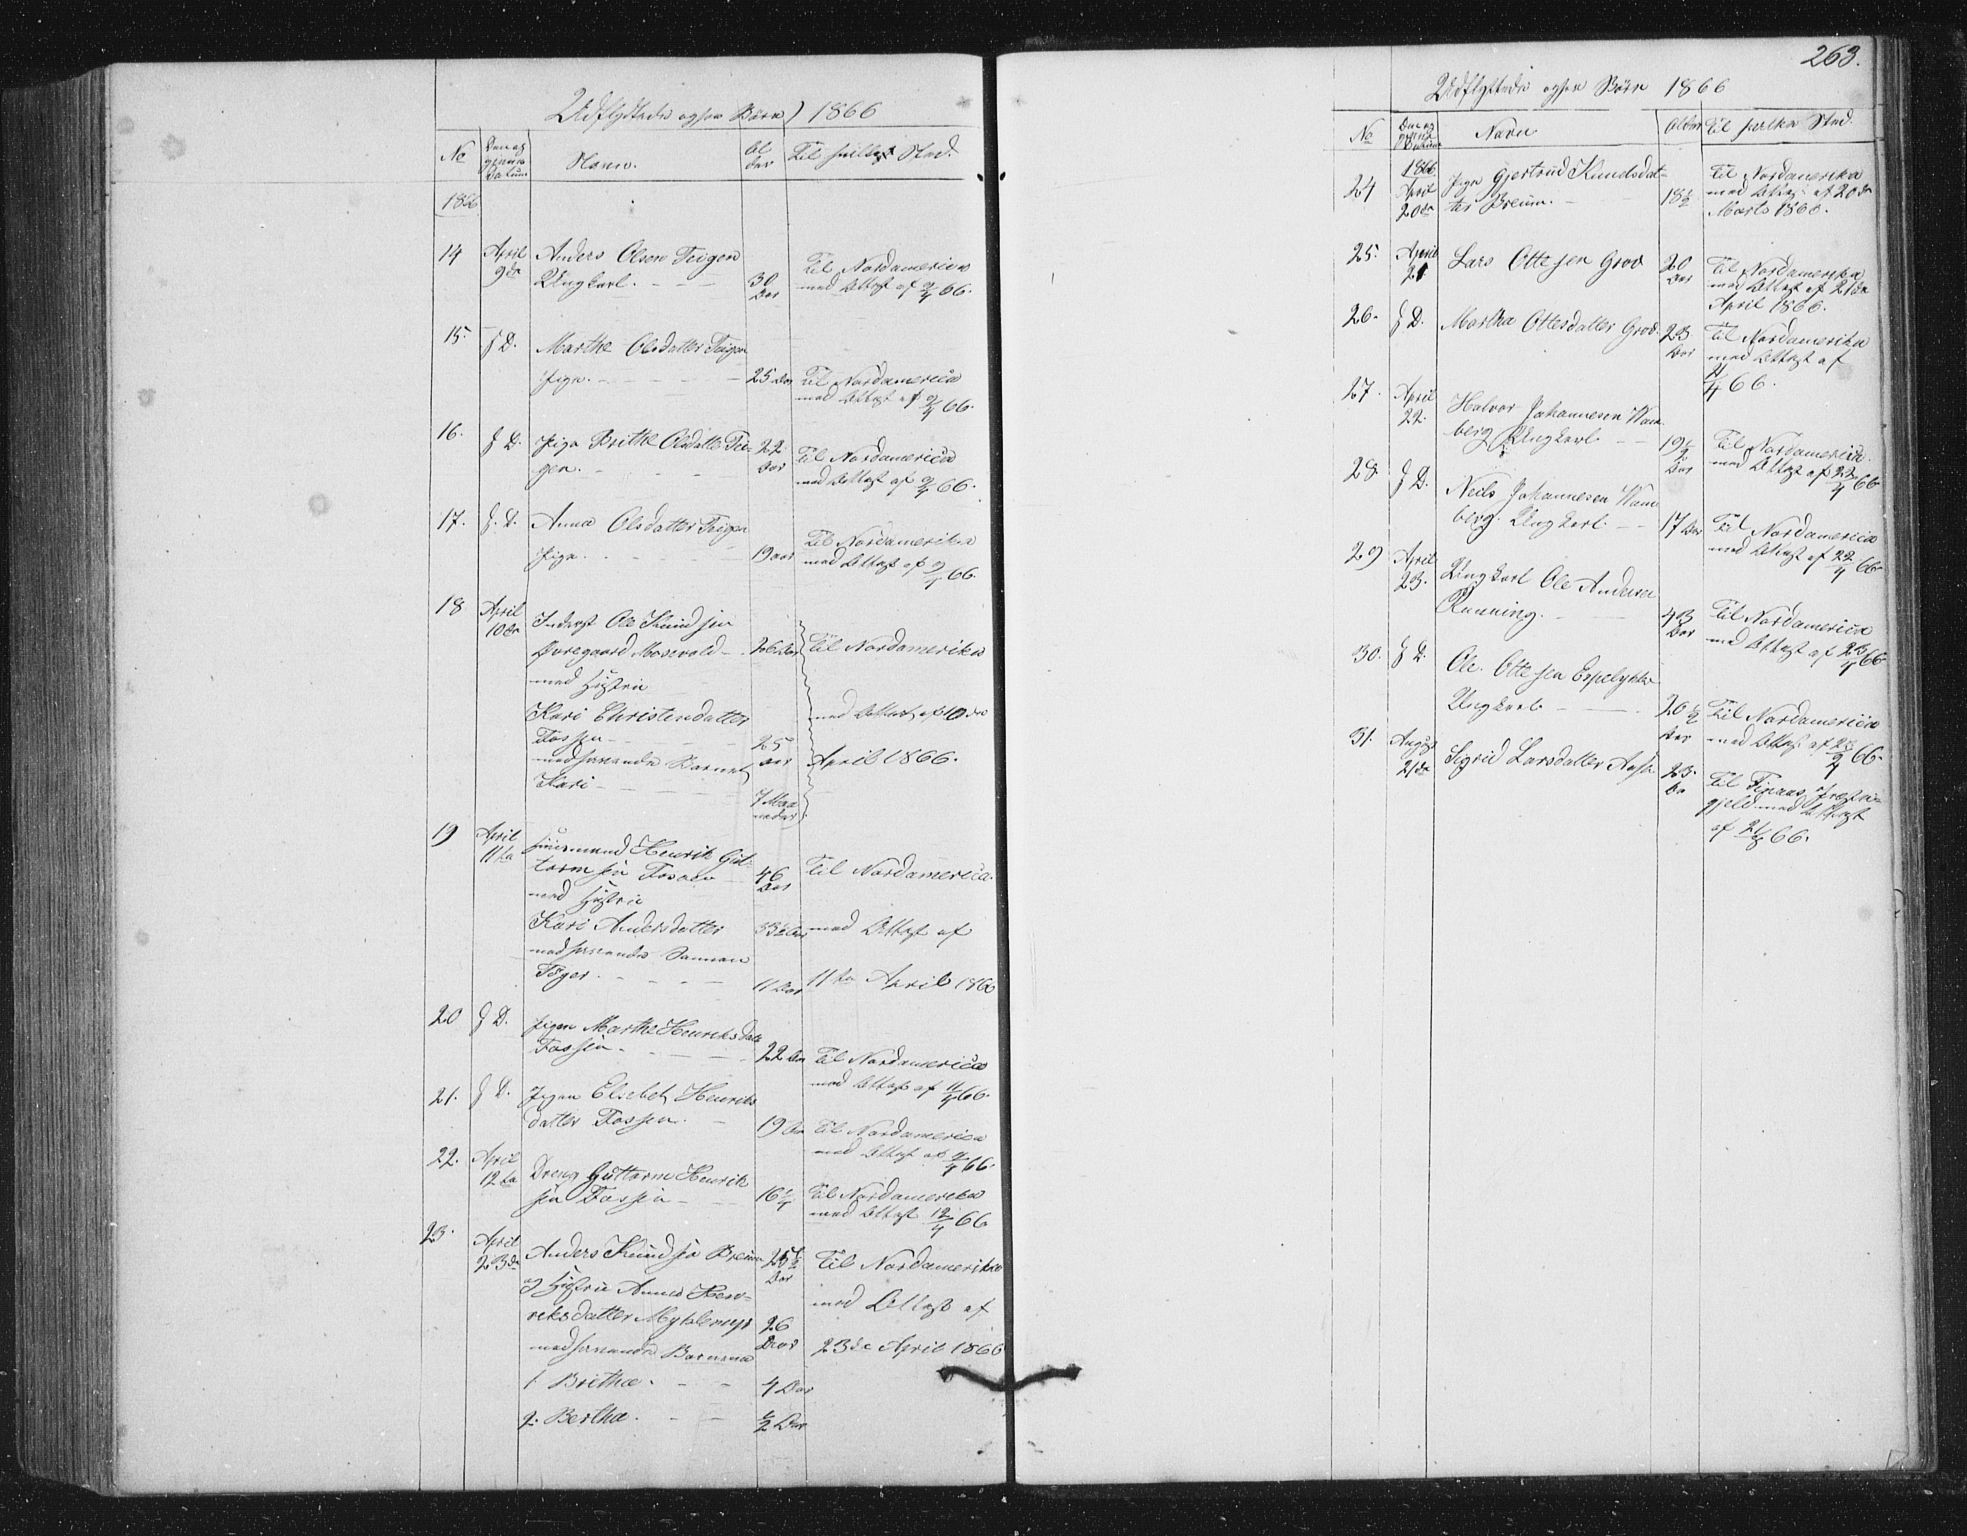 1866
No
Navn.
Til hvilket Sted.
1866
14 April 9de Anders Olsen Teigen
Ungkarl. 30 Aar
Til Nordamerica
med Attest af 9/4 66.
15. J D. Marthe Olsdatter Teigen
Pige. 25 Aar Til Nordamerica
med Attest af 9/4 66.
16. J D. Pige Brithe Olsdatter Tei-
gen. 22 Aar Til Nordamerica
med Attest af 9/4 66.
17. J. D. Anna Olsdatter Teigen
Pige. 19 aar Til Nordamerika
med Attest af 9/4 66.
18 April 10de Inderst Ole Knudsen
Øvregaard Mosevold 26 Aar Til Nordamerika
med Hustru
Kari Christensdatter
Fossen 25 aar med Attest af 10de
medhavende Barnet
Kari 7 Maaneder April 1866.
19 April 11te Huusmand Henrik Gut-
tormsen Fossen 46 Aar Til Nordamerica.
med Hustru
Kari Andersdatter 33½ Aar med Attest af
medhavende Sønnen
11 Aar 11te April 1866
20 J D. Pigen Marthe Henriksdatt
Fossen. 22 Aar Til Nordamerica
med Attest af 11/4 66.
21. J D. Pigen Elsebet Henriks
datter Fossen. 19 Aar Til Nordamerica
med Attest af 11/4 66.
22. April 12te Dreng Guttorm Henrik
sen Fossen 16¼ Til Nordamerika
med Attest 12/4 66
23. April 23de Anders Knudsen Breum 25½ Aar Til Nordamerika
og Hustru Anne Hen-
riksdatter Myklemyr 26 Aar med Attest af
medhavende Børnene 23de April 1866
1 Brithe. 4 Aar
2. Bertha. ½ Aar
263.
1866
No Navn Alder Til hvilket Sted.
1866
24 April 20de Pige Gjertrud Knudsdat-
ter Breum. 18½
Til Nordamerika
med Attest af 20de
Marts 1866.
25. April 21 Lars Ottesen Grov 20 Aar
Til Nordamerika
med Attest af 21de
April 1866.
26. J D. Martha Ottesdatter Grov. 23 Aar
Til Nordamerika
med Attest af
66.
27. April 22. Halvor Johannesen Wam
berg Ungkarl 19½ Aar
Til Nordamerica.
med Attest af 22/4 66
28. J D. Neils Johannesen Wam
berg. Ungkarl. 17 Aar
Til Nordamerica
med Attest af 22/4 66
29 April 23. Ungkarl Ole Andersen
Rønning. 43 Aar
Til Nordamerica
med Attest af 23/4 66
30. J D. Ole Ottesen Espelykke
Ungkarl 20½ Aar
Til Nordamerica
med Attest af 23/4 66.
31. August 21de Sigrid Larsdatter 23. Aa
Til
gjeld med Attest
af 21/8 66.